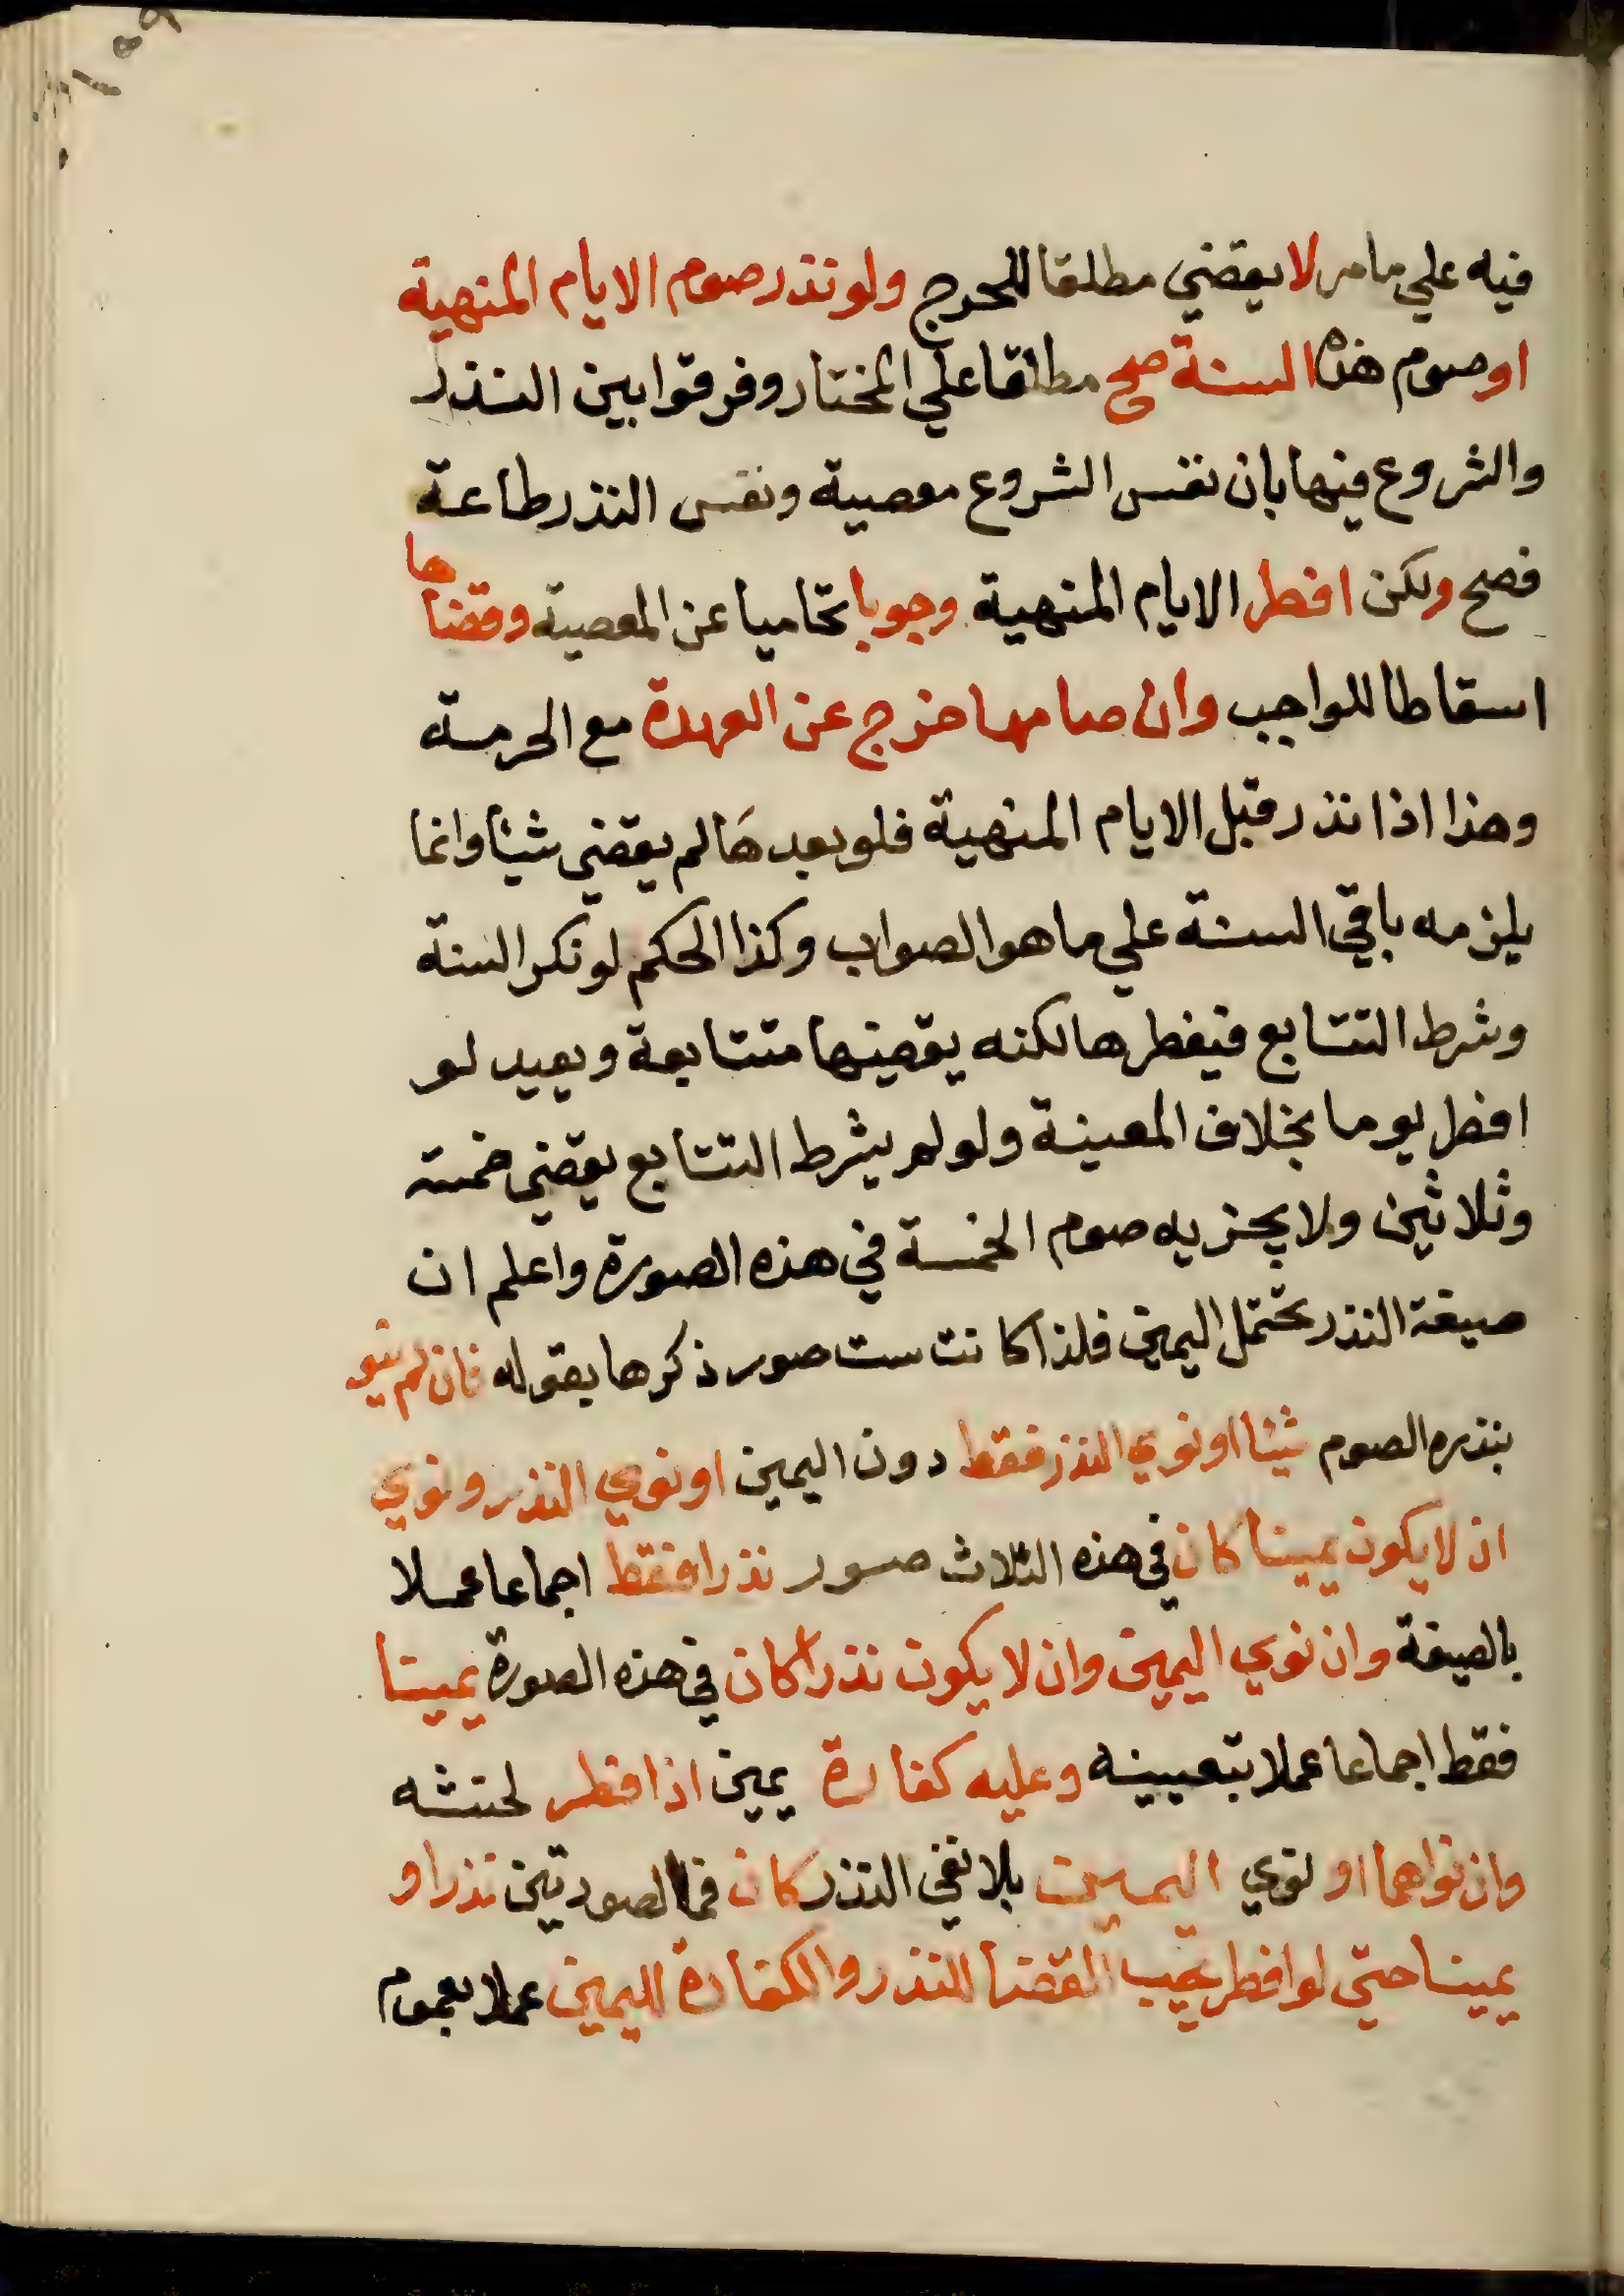 فيه علي ما مر لا يقضي مطلقا للحرج ولو نذر صوم الايام المنهية
او صوم هذه السنة صح مطلقا علي المختار وفرقوا بين النذر
والشروع فيها بان نفس الشروع معصية ونفس النذر طاعة
فصح ولكن افطر الايام المنهية وجوبا تحاميا عن المعصية وقضاها
اسقاطا للواجب وان صامها خرج عن العهدة مع الحرمة
وهذا اذا نذر قبل الايام المنهية فلو بعدها لم يقضي شيأ وانما
يلزمه باقي السنة علي ما هو الصواب وكذا الحكم لو نكر السنة
وشرط التتابع فيفطرها لكنه يقضيها متتابعة ويعيد لو
افطر يوما بخلاف المعينة ولو لم يشرط التتابع يقضي خمسة
وثلاثين ولا يجزيه صوم الخمسة في هذه الصورة واعلم ان
صيغة النذر تحتمل اليمين فلذا كانت ست صور ذكرها بقوله فان لم ينو
بنذره الصوم شيئا او نوي النذر فقط دون اليمين او نوي النذر ونوي
ان لا يكون يمينا كان في هذه الثلاث صور نذرا فقط اجماعا عملا
بالصيغة وان نوي اليمين وان لا يكون نذرا كان في هذه الصورة يمينا
فقط اجماعا عملا بتعيينه وعليه كفارة يمين اذا افطر لحنثه
وان نواهما او نوي اليمين بلا نفي النذر كان في الصورتين نذرا و
يمينا حتي لو افطر يجب القضا للنذر والكفارة لليمين عملا بعموم